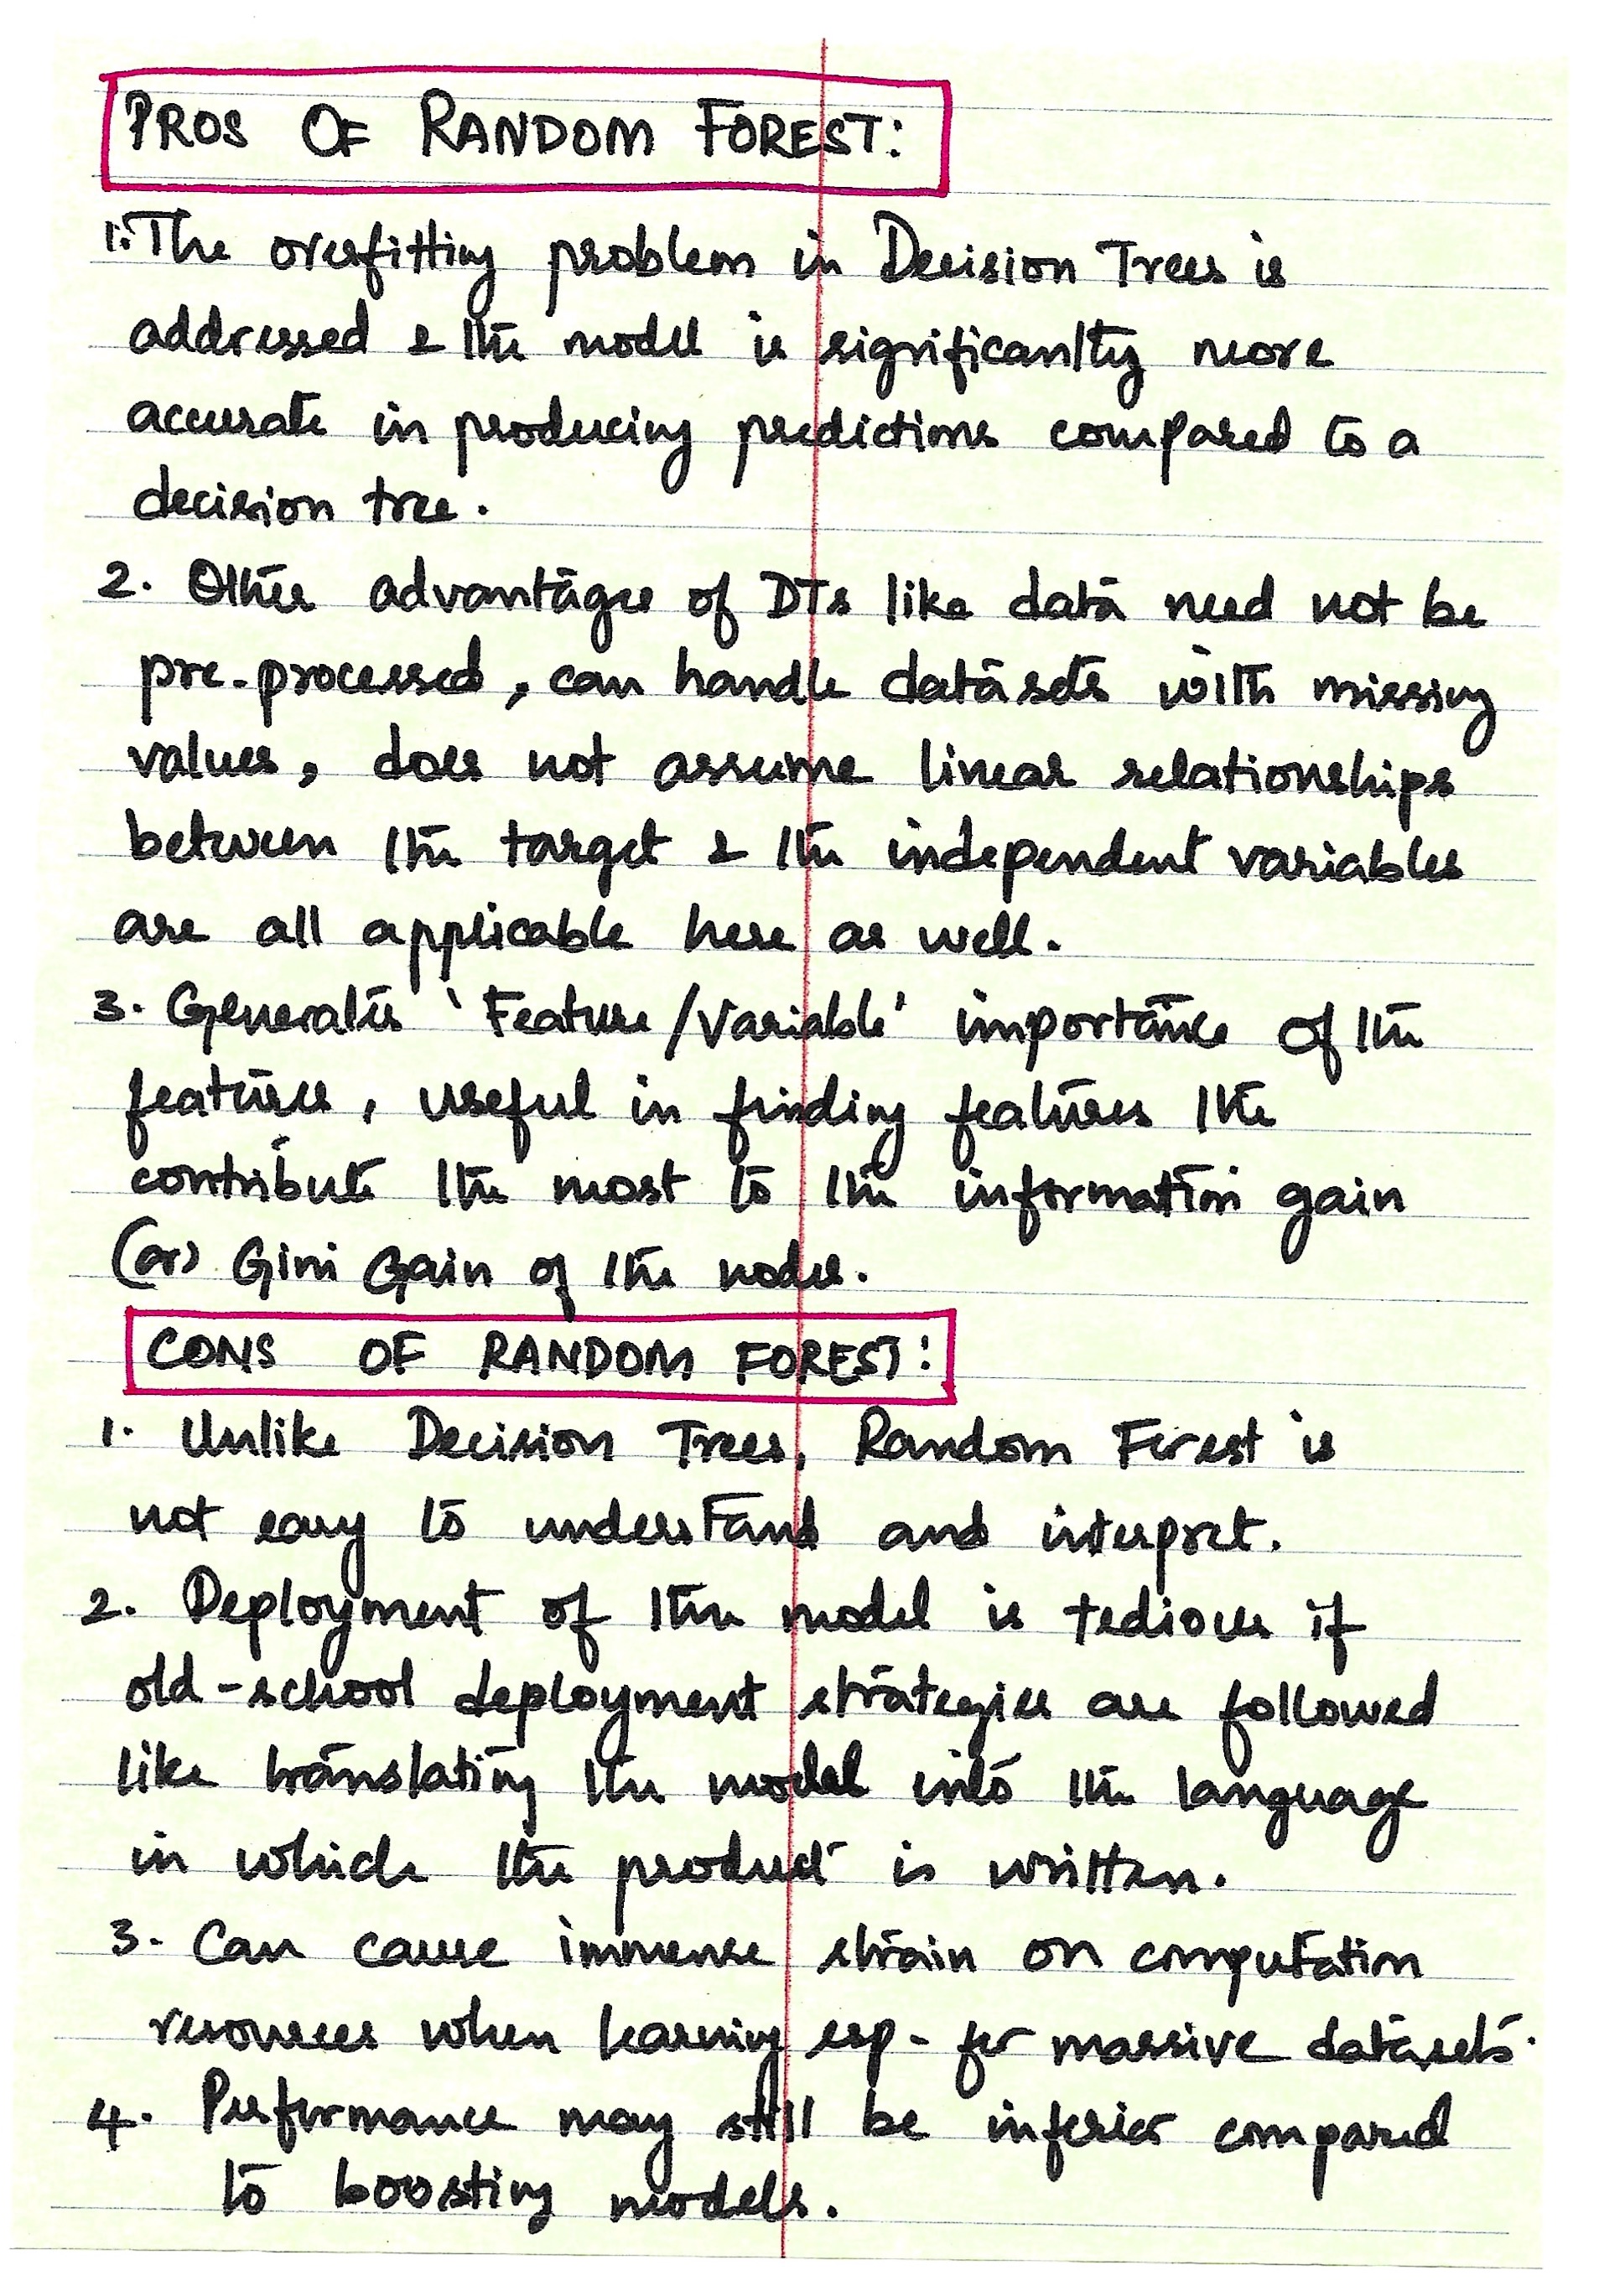 PROS OF RANDOM FOREST:
1. The overfitting problem in Decision Trees is
addressed & the model is significantly more
accurate in producing predictions compared to a
decision tree.
2. Other advantages of DTs like data need not be
pre-processed, can handle datasets with missing
values, does not assume linear relationships
between the target & the independent variables
are all applicable here as well.
3. Generates 'Feature/Variable' importance of the
features, useful in finding features the
contribute the most to the information gain
(or) Gini Gain of the nodes.
CONS OF RANDOM FOREST:
1. Unlike Decision Trees, Random Forest is
not easy to understand and interpret.
2. Deployment of the model is tedious if
old-school deployment strategies are followed
like translating the model into the language
in which the product is written.
3. Can cause immense strain on computation
resources when learning esp. for massive datasets.
4. Performance may still be inferior compared
to boosting models.